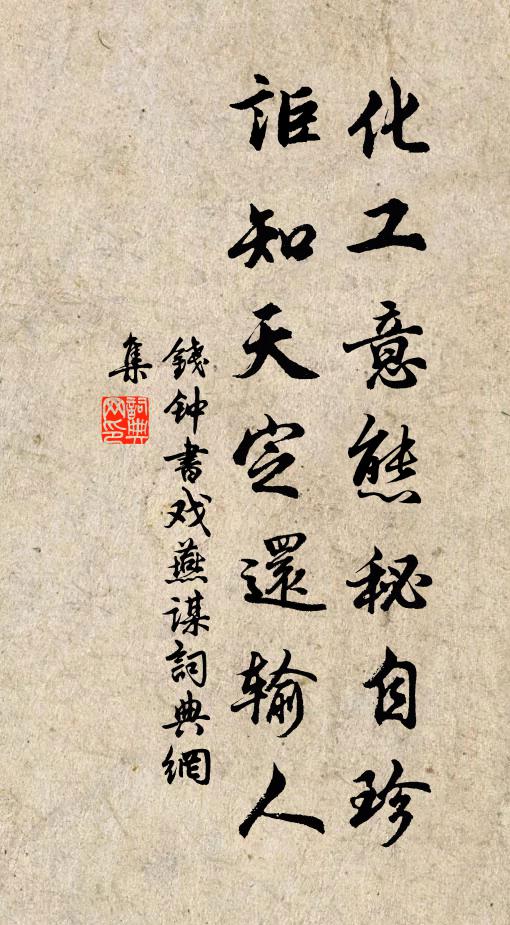 化工意態秘自珍
詎知天定還输人
錢钟書戏燕谋詞典網
集
詞典
网印